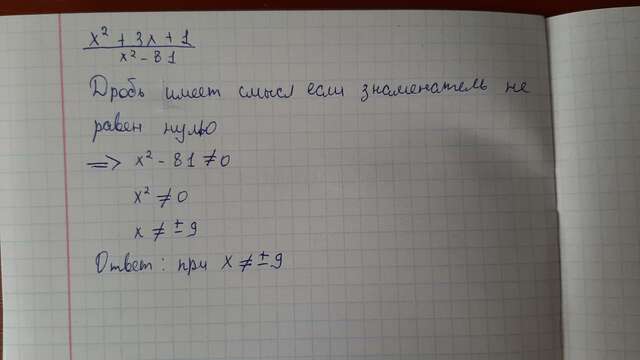 x² + 3x + 1
x² - 81
Дробь имеет смысл если знаменатель не
равен нулю
=> x² - 81 ≠ 0
x² ≠ 0
x ≠ ± 9
Ответ: при x ≠ ± 9